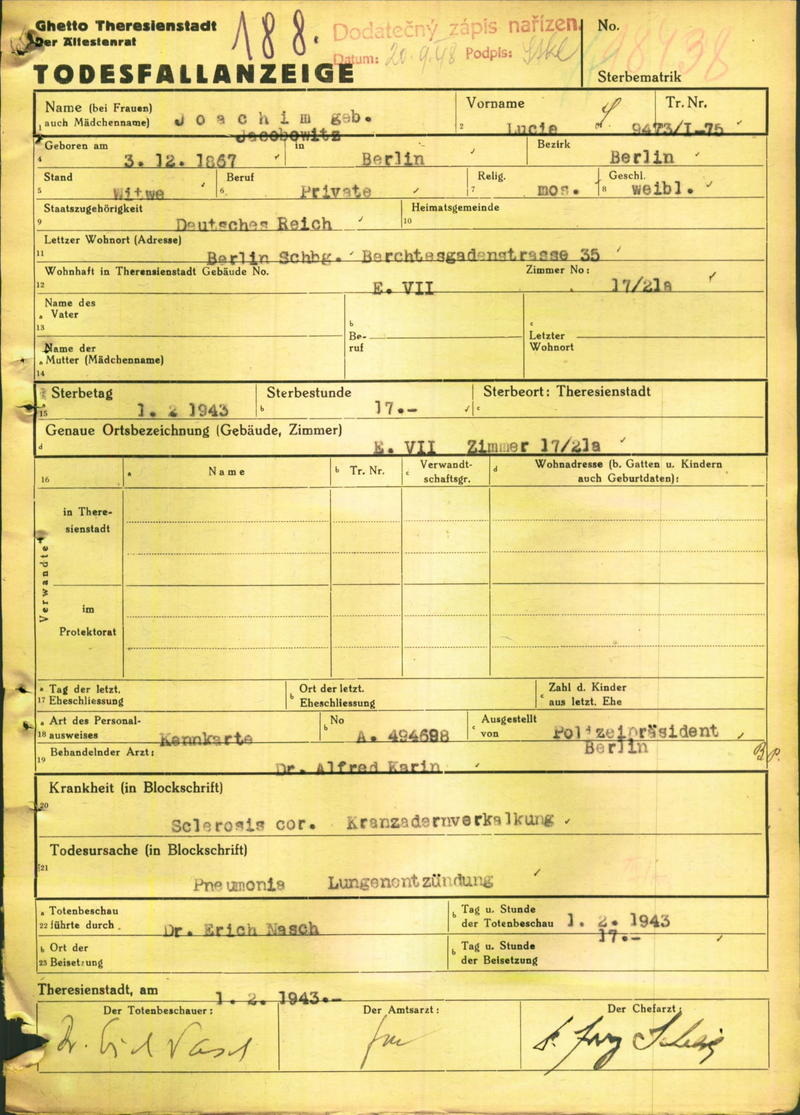 Ghetto Theresienstadt
Der Ältestenrat
188.
Dodatečný zápis nařízen.
Datum: 20.9.48 Podpis:
No.
98438
TODESFALLANZEIGE
Sterbematrik
Name (bei Frauen)
1 auch Mädchenname) Joachim geb.
Jacobowitz
Vorname
2 Lucie
Tr. Nr.
9473/I-75
Geboren am
4 3. 12. 1867
in
Berlin
Bezirk
Berlin
Stand
5 Witwe
Beruf
6. Private
Relig.
7 mos.
Geschl.
8 weibl.
Staatszugehörigkeit
9 Deutsches Reich
Heimatsgemeinde
10
Lettzer Wohnort (Adresse)
11 Berlin Schbg. Berchtesgadenstrasse 35
Wohnhaft in Therensienstadt Gebäude No.
12 E. VII
Zimmer No:
17/21a
Name des
a Vater
13
b
Be-
ruf
c
Letzter
Wohnort
Name der
a Mutter (Mädchenname)
14
a Sterbetag
15 1. 2 1943
Sterbestunde
b 17.-
Sterbeort: Theresienstadt
c
Genaue Ortsbezeichnung (Gebäude, Zimmer)
d E. VII Zimmer 17/21a
16
a Name
b Tr. Nr.
c Verwandt-
schaftsgr.
d Wohnadresse (b. Gatten u. Kindern
auch Geburtdaten):
Verwandte
in There-
sienstadt
im
Protektorat
a Tag der letzt.
17 Eheschliessung
b Ort der letzt.
Eheschliessung
c Zahl d. Kinder
aus letzt. Ehe
a Art des Personal-
18 ausweises Kennkarte
b No
A. 494698
c Ausgestellt
von Polizeipräsident
Berlin
Behandelnder Arzt:
19 Dr. Alfred Karin
Krankheit (in Blockschrift)
20
Sclerosis cor. Kranzadernverkalkung
Todesursache (in Blockschrift)
21
Pneumonia Lungenentzündung
a Totenbeschau
22 führte durch Dr. Erich Nasch
b Tag u. Stunde
der Totenbeschau 1. 2. 1943
17.-
b Ort der
23 Beisetzung
b Tag u. Stunde
der Beisetzung
Theresienstadt, am 1. 2. 1943.-
Der Totenbeschauer:
Der Amtsarzt:
Der Chefarzt: